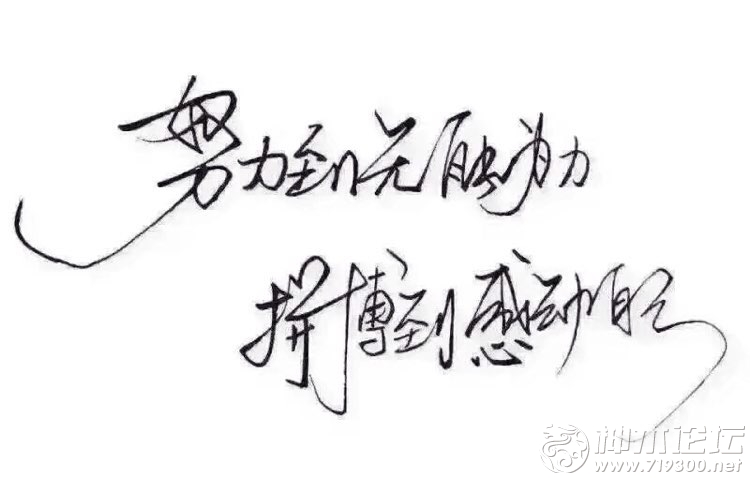 努力到无能为力
拼博到感动自己
神木论坛
www.719300.net